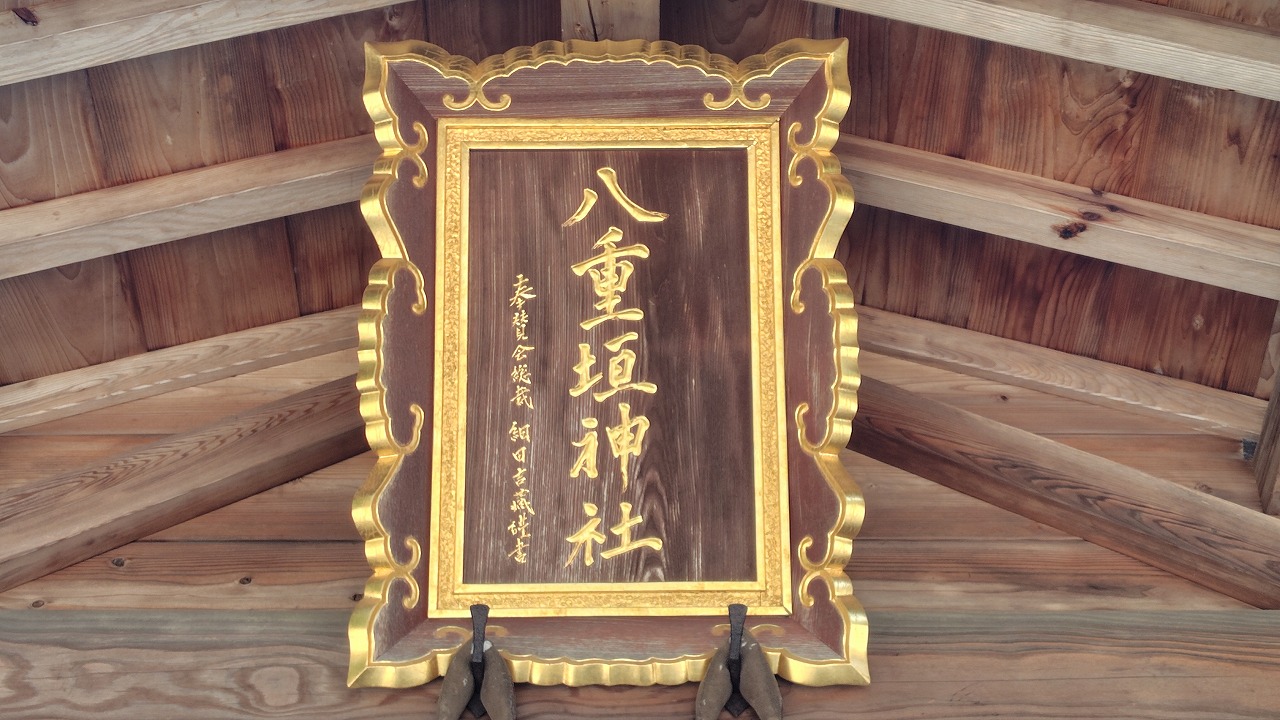 八重垣神社
奉賛会総裁 細田吉蔵謹書